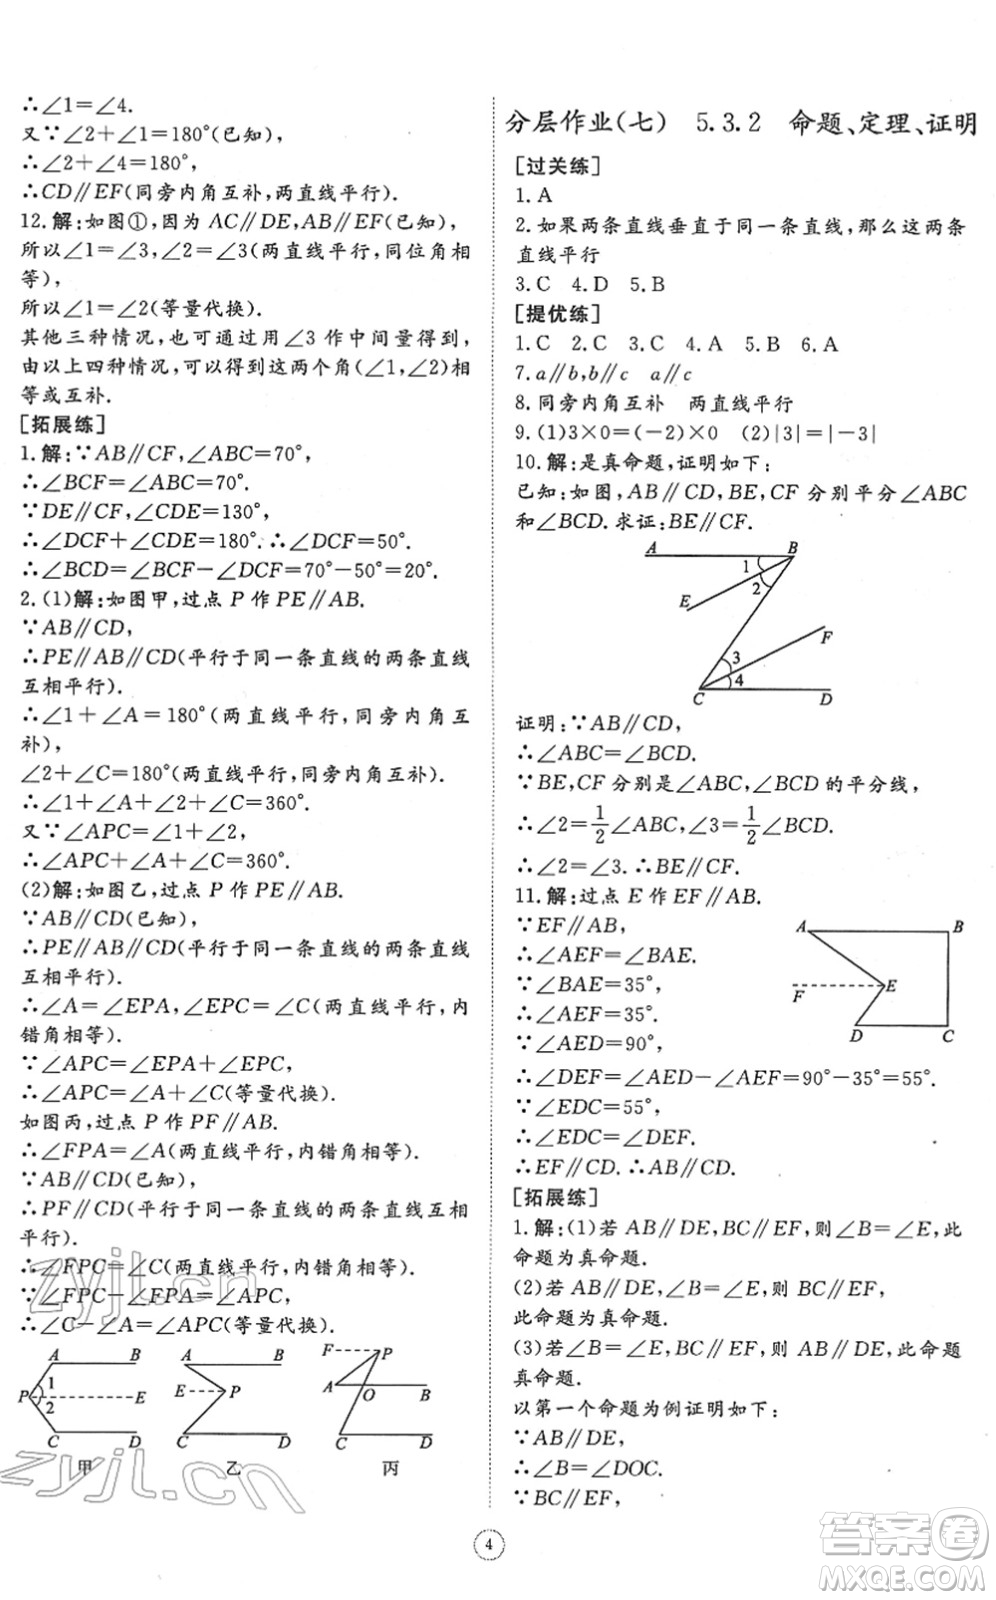 ∴∠1=∠4.
又∵∠2+∠1=180°(已知),
∴∠2+∠4=180°,
∴CD∥EF(同旁内角互补,两直线平行).
12.解:如图①,因为 AC∥DE,AB∥EF(已知),
所以∠1=∠3,∠2=∠3(两直线平行,同位角相
等),
所以∠1=∠2(等量代换).
其他三种情况,也可通过用∠3 作中间量得到,
由以上四种情况可以得到这两个角(∠1,∠2)相
等或互补.
[拓展练]
1.解:∵AB∥CF,∠ABC=70°,
∴∠BCF=∠ABC=70°.
∵DE∥CF,∠CDE=130°,
∴∠DCF+∠CDE=180°.∴∠DCF=50°.
∴∠BCD=∠BCF-∠DCF=70°-50°=20°.
2.(1)解:如图甲,过点 P 作 PE∥AB.
∵AB∥CD,
∴PE∥AB∥CD(平行于同一条直线的两条直线
互相平行).
∴∠1+∠A=180°(两直线平行,同旁内角互
补),
∠2+∠C=180°(两直线平行,同旁内角互补).
∴∠1+∠A+∠2+∠C=360°.
又∵∠APC=∠1+∠2,
∴∠APC+∠A+∠C=360°.
(2)解:如图乙,过点 P 作 PE∥AB.
∵AB∥CD(已知),
∴PE∥AB∥CD(平行于同一条直线的两条直线
互相平行).
∴∠A=∠EPA,∠EPC=∠C(两直线平行,内
错角相等).
∵∠APC=∠EPA+∠EPC,
∴∠APC=∠A+∠C(等量代换).
如图丙,过点 P 作 PF∥AB.
∴∠FPA=∠A(两直线平行,内错角相等).
∵AB∥CD(已知),
∴PF∥CD(平行于同一条直线的两条直线互相
平行).
∴∠FPC=∠C(两直线平行,内错角相等).
∵∠FPC-∠FPA=∠APC,
∴∠C-∠A=∠APC(等量代换).
A B P 1 2 E C D 甲
A B E P C D 乙
F P A O B C D 丙
分层作业(七) 5.3.2 命题、定理、证明
[过关练]
1.A
2.如果两条直线垂直于同一条直线,那么这两条
直线平行
3.C 4.D 5.B
[提优练]
1.C 2.C 3.C 4.A 5.B 6.A
7.a∥b,b∥c a∥c
8.同旁内角互补 两直线平行
9.(1)3×0=(-2)×0 (2)|3|=|-3|
10.解:是真命题,证明如下:
已知:如图,AB∥CD,BE,CF 分别平分∠ABC
和∠BCD.求证:BE∥CF.
A B 1 2 E F 3 4 C D
证明:∵AB∥CD,
∴∠ABC=∠BCD.
∵BE,CF 分别是∠ABC,∠BCD 的平分线,
∴∠2=1/2∠ABC,∠3=1/2∠BCD.
∴∠2=∠3.∴BE∥CF.
11.解:过点 E 作 EF∥AB.
∵EF∥AB,
∴∠AEF=∠BAE.
∵∠BAE=35°,
∴∠AEF=35°.
∵∠AED=90°,
∴∠DEF=∠AED-∠AEF=90°-35°=55°.
∵∠EDC=55°,
∴∠EDC=∠DEF.
∴EF∥CD.∴AB∥CD.
A B F E D C
[拓展练]
1.解:(1)若 AB∥DE,BC∥EF,则∠B=∠E,此
命题为真命题.
(2)若 AB∥DE,∠B=∠E,则 BC∥EF,
此命题为真命题.
(3)若∠B=∠E,BC∥EF,则 AB∥DE,此命题为
真命题.
以第一个命题为例证明如下:
∵AB∥DE,
∴∠B=∠DOC.
∵BC∥EF,
4
zyjl.cn
zyjl.cn
答案圈
MXQE.COM